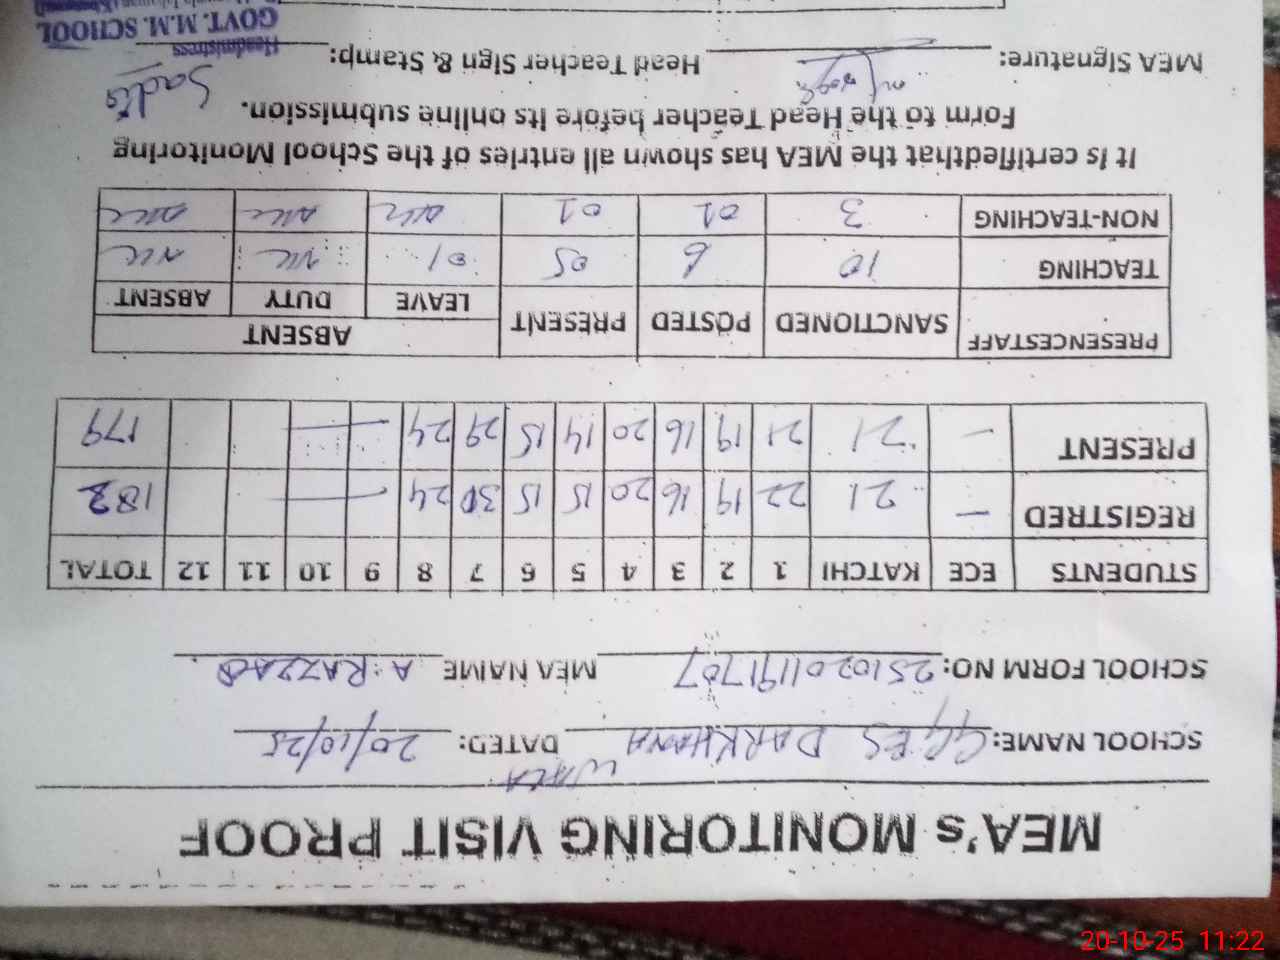 MEA's MONITORING VISIT PROOF
SCHOOL NAME: GGES DARKHANA WALA DATED: 20/10/25
SCHOOL FORM NO: 2510201191707 MEA NAME A. RAZZAQ
STUDENTS ECE KATCHI 1 2 3 4 5 6 7 8 9 10 11 12 TOTAL
REGISTRED — 21 22 19 16 20 15 15 30 24 — 182
PRESENT — 21 21 19 16 20 14 15 29 24 — 179
PRESENCESTAFF SANCTIONED POSTED PRESENT ABSENT
LEAVE DUTY ABSENT
TEACHING 10 6 05 01 NIL NIL
NON-TEACHING 3 01 01 NIL NIL NIL
It is certifiedthat the MEA has shown all entries of the School Monitoring
Form to the Head Teacher before its online submission.
MEA Signature: Head Teacher Sign & Stamp: Sadia
Headmistress
GOVT. M.M. SCHOOL
20-10-25 11:22